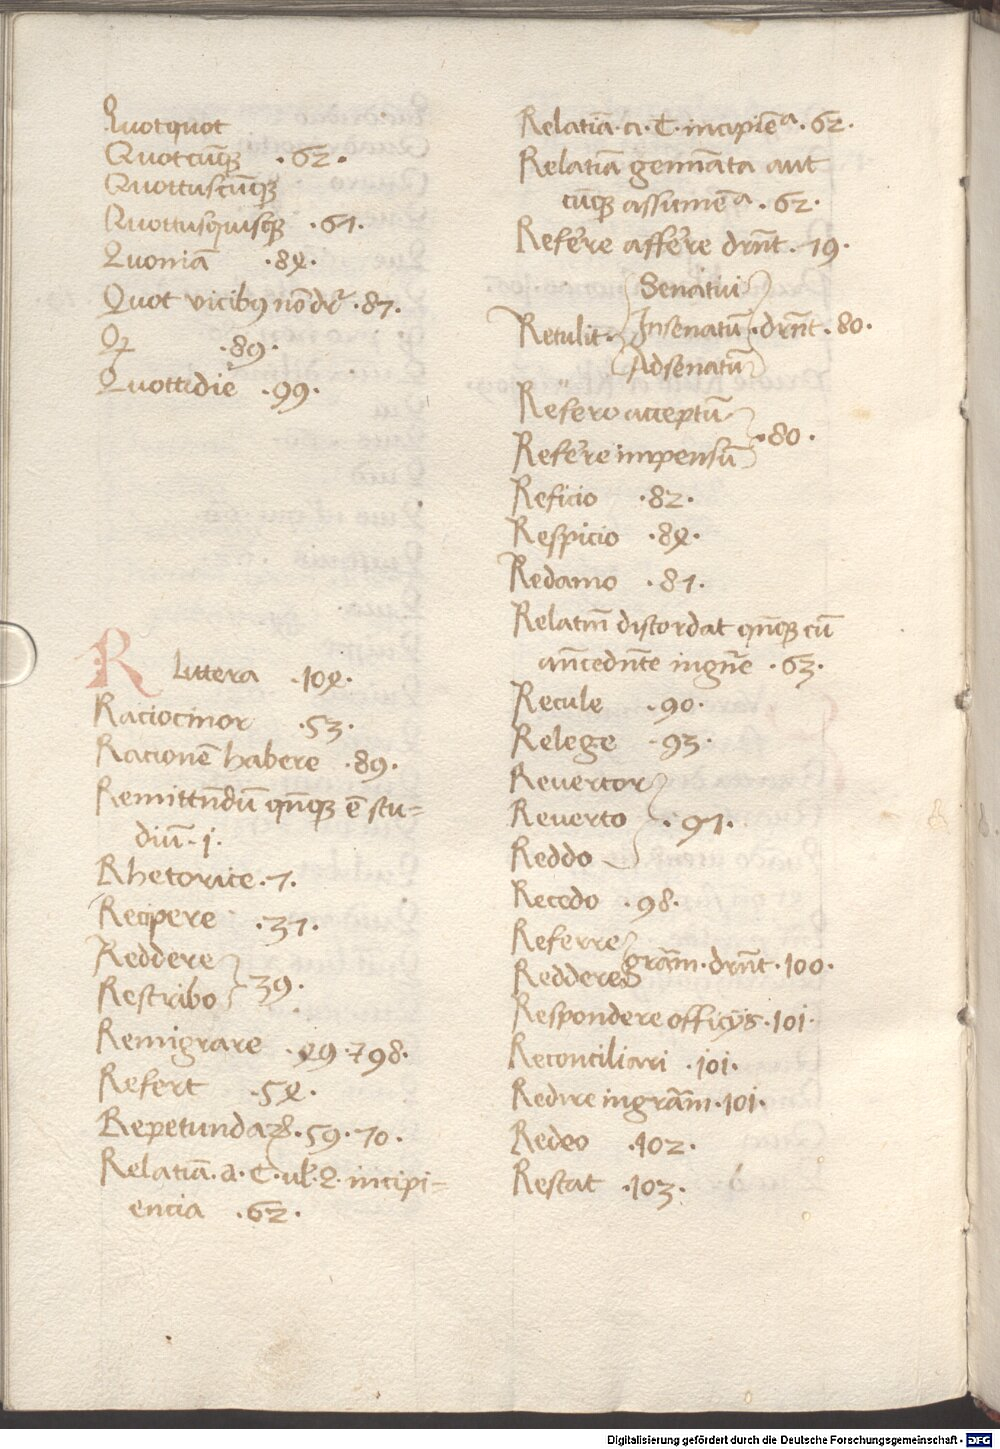 Quotquot
Quotcūqꝫ .62.
Quottuscūqꝫ
Quottusquisqꝫ .61.
Quoniā .84.
Quot vicibꝰ nō dr̄ .87.
Qꝫ .89.
Quottidie .99.
R Littera .104.
Raciocinor .53.
Racionē habere .89.
Remittn̄dū qn̄qꝫ ē stu=
diū .1.
Rhetorice .7.
Recipere .37.
Reddere
Rescribo 39.
Remigrare .49.798.
Refert .54.
Repetundaꝝ .59.70.
Relatiā. a. C. ul. Q. incipi=
encia .62.
Relatiā. a. C. incipiēᵃ .62.
Relatiā gemināta aut
cūqꝫ assumēᵃ .62.
Referre afferre drn̄t .19.
Senatui
Retulit Insenatū drn̄t .80.
Adsenatū
Refero acceptū
Referre impensū .80.
Reficio .82.
Respicio .84.
Redamo .81.
Relatm̄ discordat qn̄qꝫ cū
an̄cedn̄te ingn̄e .63.
Recule .90.
Relege .93.
Reuertor
Reuerto .91.
Reddo
Recedo .98.
Referre
Reddere grām. drn̄t .100.
Respondere officijs .101.
Reconciliari .101.
Redire ingrām .101.
Redeo .102.
Restat .103.
Digitalisierung gefördert durch die Deutsche Forschungsgemeinschaft - DFG